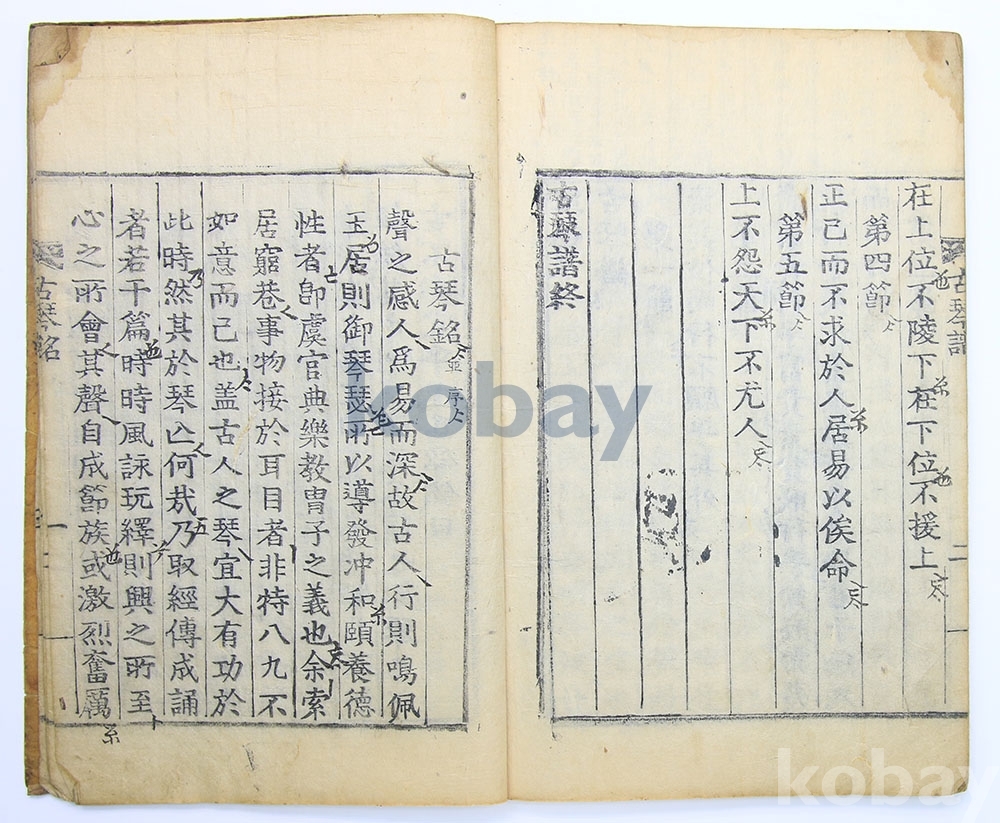 古琴譜
二
在上位不陵下在下位不援上
第四節
正己而不求於人居易以俟命
第五節
上不怨天下不尤人
古琴譜終
古琴銘 並序
聲之感人爲易而深故古人行則鳴佩
玉居則御琴瑟所以導發冲和頤養德
性者卽虞官典樂教胄子之義也余索
居窮巷事物接於耳目者非特八九不
如意而已也盖古人之琴宜大有功於
此時然其於琴亾何㢤乃取經傳成誦
者若干篇時時風詠玩繹則興之所至
心之所會其聲自成節族或激烈奮厲
古琴銘
一
kobay
kobay